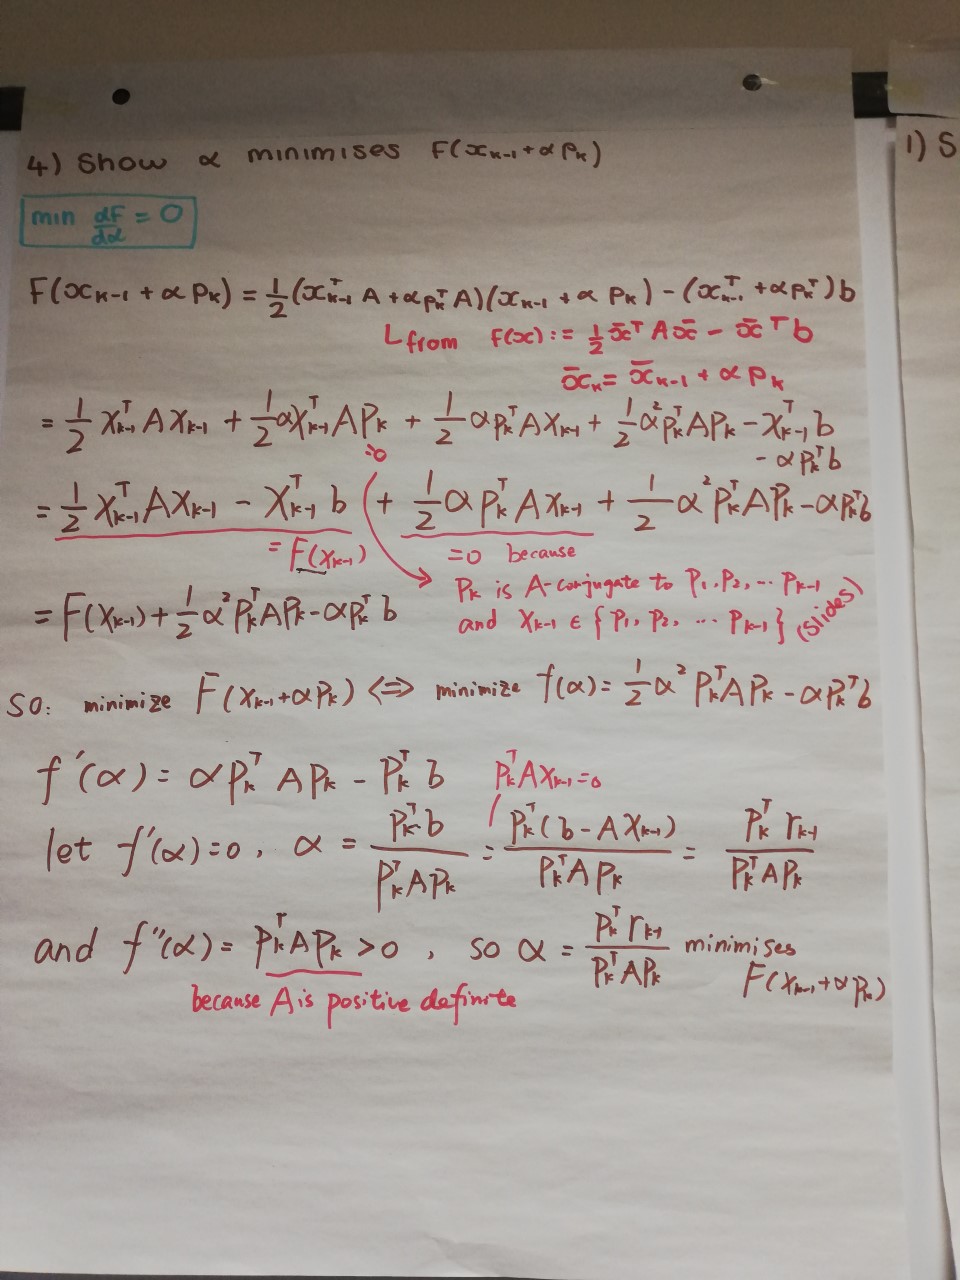 4) Show α minimises F(x_{k-1} + α p_k)
min dF/dα = 0
F(x_{k-1} + α p_k) = 1/2 (x_{k-1}^T A + α p_k^T A)(x_{k-1} + α p_k) - (x_{k-1}^T + α p_k^T) b
from F(x) := 1/2 x̄^T A x̄ - x̄^T b
x̄_k = x̄_{k-1} + α p_k
= 1/2 x_{k-1}^T A x_{k-1} + 1/2 α x_{k-1}^T A p_k + 1/2 α p_k^T A x_{k-1} + 1/2 α^2 p_k^T A p_k - x_{k-1}^T b
- α p_k^T b
=0
= 1/2 x_{k-1}^T A x_{k-1} - x_{k-1}^T b + 1/2 α p_k^T A x_{k-1} + 1/2 α^2 p_k^T A p_k - α p_k^T b
= F(x_{k-1})
=0 because
p_k is A-conjugate to p_1, p_2, ... p_{k-1}
and x_{k-1} ∈ {p_1, p_2, ... p_{k-1}} (slides)
= F(x_{k-1}) + 1/2 α^2 p_k^T A p_k - α p_k^T b
SO: minimize F(x_{k-1} + α p_k) <=> minimize f(α) = 1/2 α^2 p_k^T A p_k - α p_k^T b
f'(α) = α p_k^T A p_k - p_k^T b
p_k^T A x_{k-1} = 0
let f'(α) = 0, α = p_k^T b / p_k^T A p_k = p_k^T (b - A x_{k-1}) / p_k^T A p_k = p_k^T r_{k-1} / p_k^T A p_k
and f''(α) = p_k^T A p_k > 0, so α = p_k^T r_{k-1} / p_k^T A p_k minimises
F(x_{k-1} + α p_k)
because A is positive definite
1) S